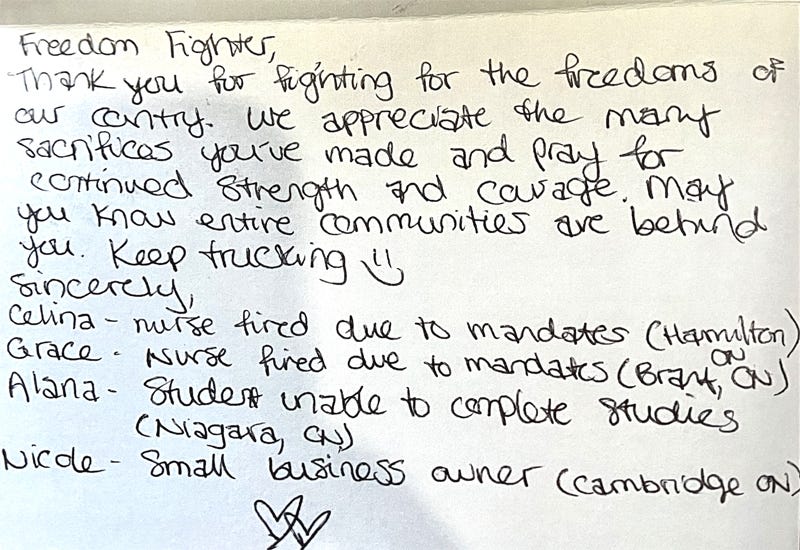 Freedom Fighter,
Thank you for fighting for the freedoms of
our contry. We appreciate the many
sacrifices you've made and pray for
continued strength and courage. May
you know entire communities are behind
you. Keep trucking
Sincerely,
Celina - nurse fired due to mandates (Hamilton)
ON
Grace - Nurse fired due to mandates (Brant, ON)
Alana - Student unable to complete studies
(Niagara, ON)
Nicole - Small business owner (Cambridge ON)